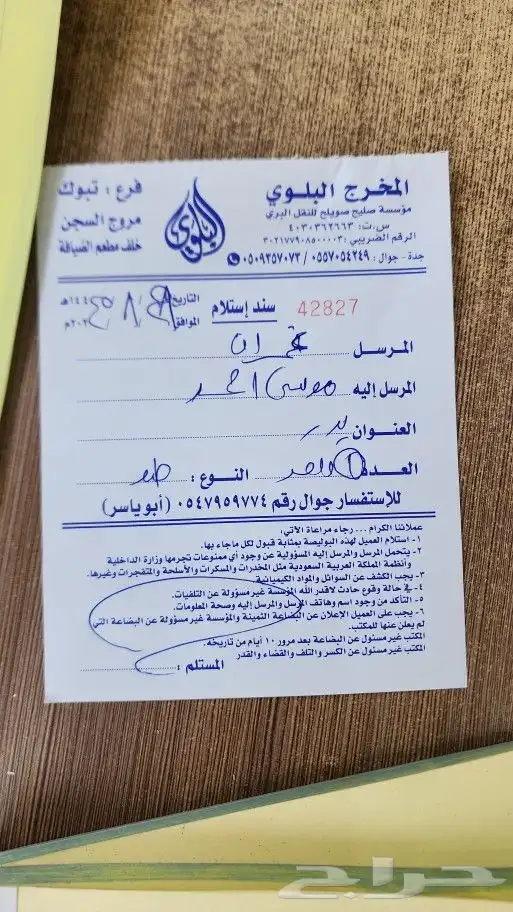 المخرج البلوي
مؤسسة صليح صويلح للنقل البري
س.ت: ٤٠٣٠٣٦٢٦٦٣
الرقم الضريبي: ٣٠٢١٧٧٩٠٨٥٠٠٠٠٣
جدة - جوال: ٠٥٥٧٠٥٤٢٤٩ / ٠٥٠٩٢٥٧٠٧٢
البلوي
فرع : تبوك
مروج السجن
خلف مطعم الضيافة
42827
سند إستلام
التاريخ
الموافق
المرسل عمران
المرسل إليه موسى احمد
العنوان
العدد 1 واحد النوع :
للإستفسار جوال رقم ٠٥٤٧٩٥٩٧٧٤ (أبو ياسر)
عملائنا الكرام ... رجاء مراعاة الآتي:
١- استلام العميل لهذه البوليصة بمثابة قبول لكل ماجاء بها.
٢- يتحمل المرسل والمرسل إليه المسؤولية عن وجود أي ممنوعات تجرمها وزارة الداخلية
وأنظمة المملكة العربية السعودية مثل المخدرات والمسكرات والأسلحة والمتفجرات وغيرها.
٣- يجب الكشف عن السوائل والمواد الكيميائية.
٤- في حالة وقوع حادث لاقدر الله المؤسسة غير مسؤولة عن التلفيات.
٥- التأكد من وجود اسم وهاتف المرسل والمرسل إليه وصحة المعلومات.
٦- يجب على العميل الإعلان عن البضاعة الثمينة والمؤسسة غير مسؤولة عن البضاعة التي
لم يعلن عنها للمكتب.
المكتب غير مسئول عن البضاعة بعد مرور ١٠ أيام من تاريخه.
المكتب غير مسئول عن الكسر والتلف والقضاء والقدر
المستلم :
حراج